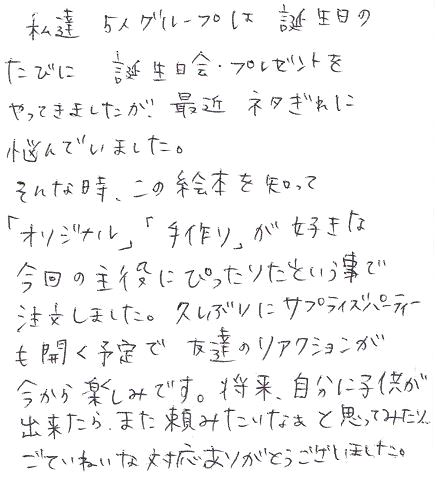 私達 5人グループは 誕生日の
たびに 誕生日会・プレゼントを
やってきましたが、最近 ネタぎれに
悩んでいました。
そんな時、この絵本を知って
「オリジナル」「手作り」が好きな
今回の主役にぴったりだという事で
注文しました。久しぶりにサプライズパーティー
も開く予定で 友達のリアクションが
今から楽しみです。将来、自分に子供が
出来たら、また頼みたいなぁと思ってみたり…
ごていねいな対応ありがとうございました。